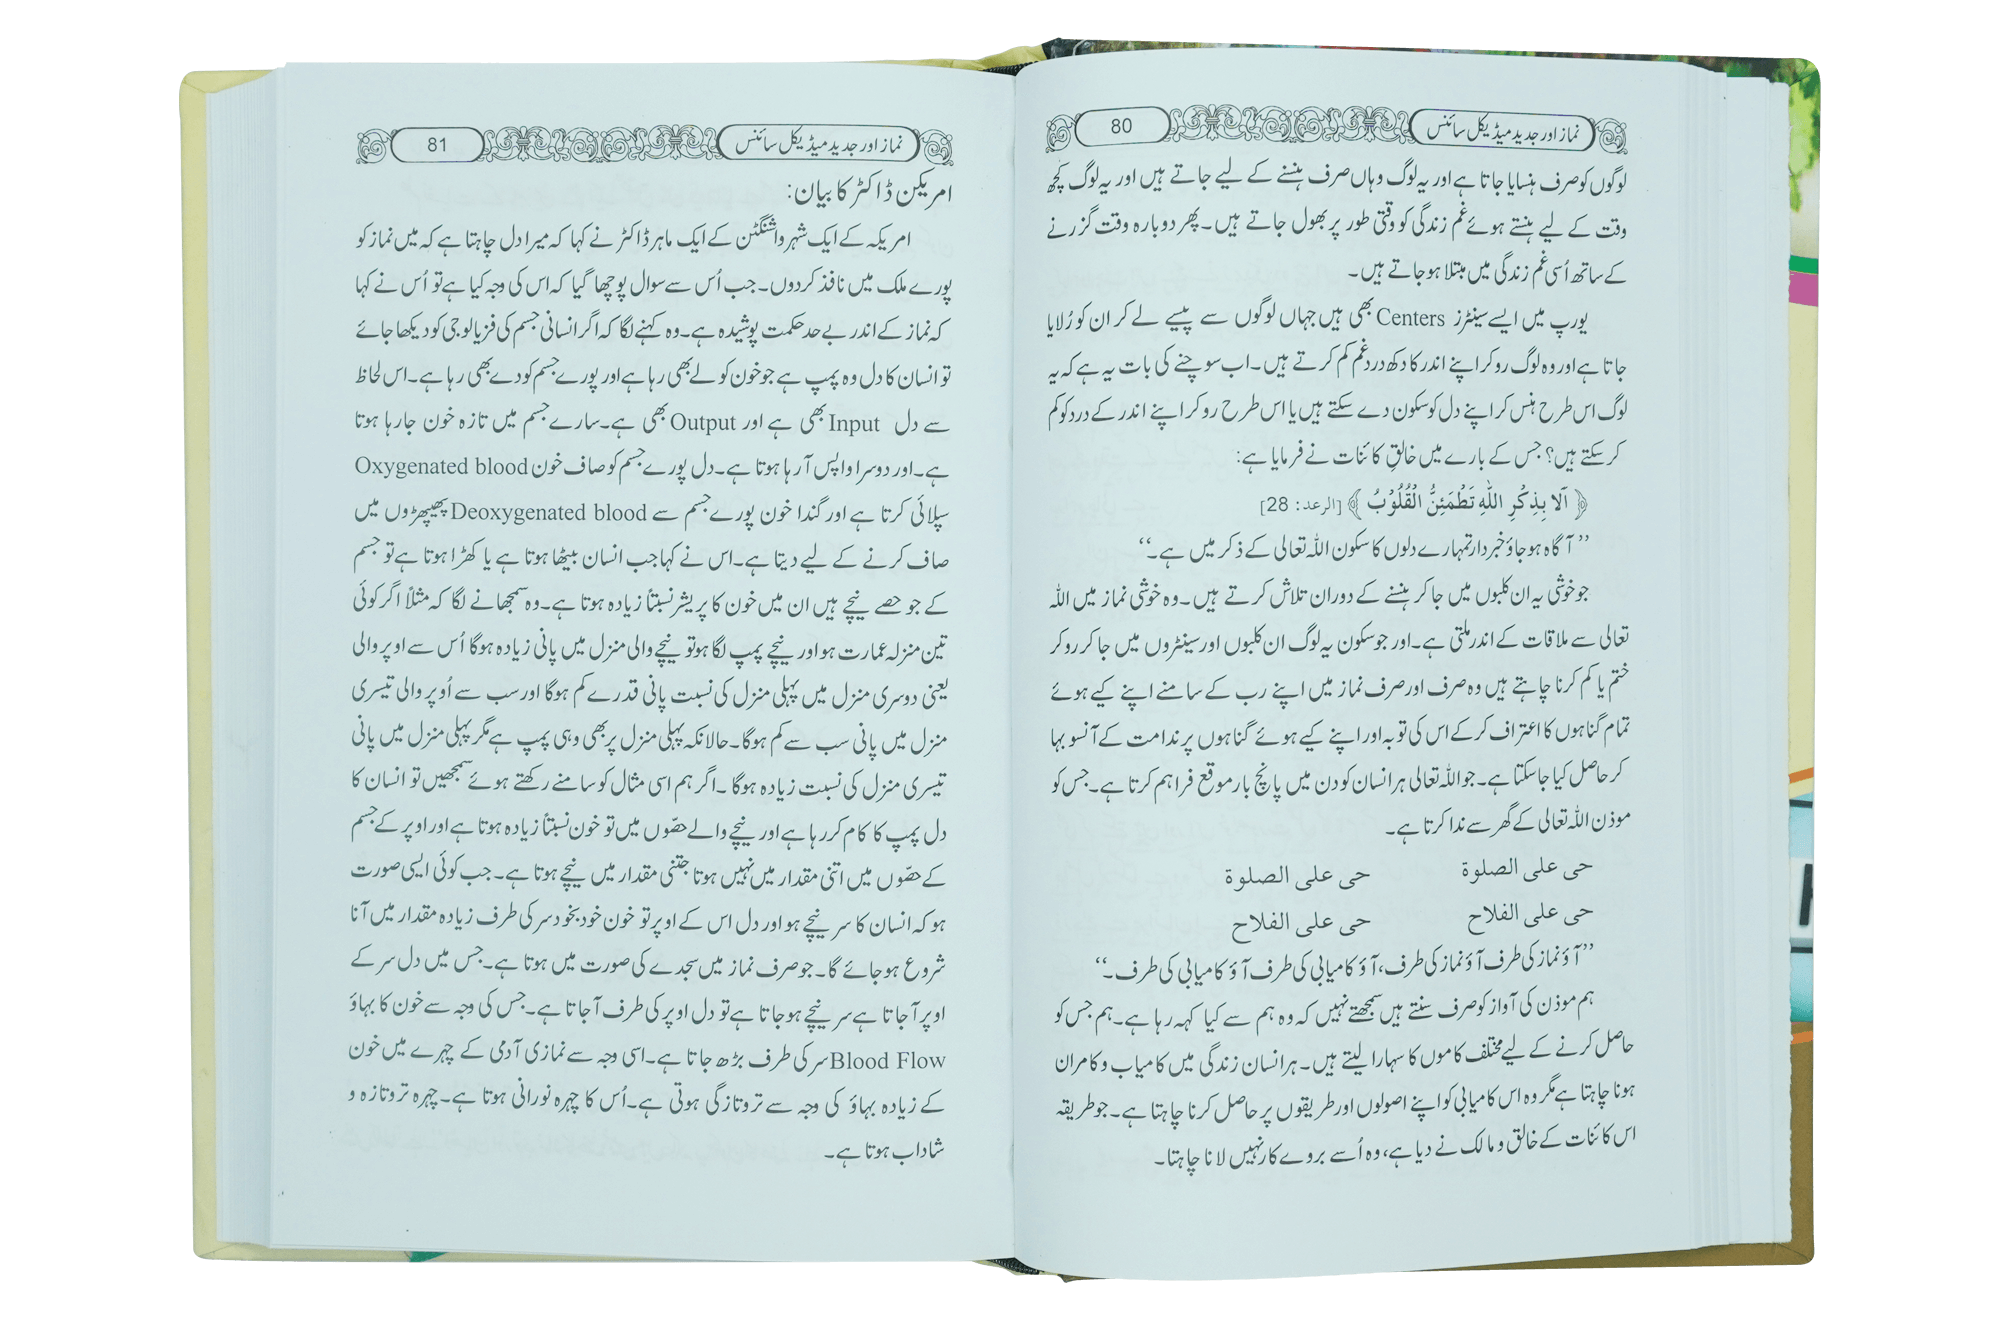 نماز اور جدید میڈیکل سائنس
80
لوگوں کو صرف ہنسایا جاتا ہے اور یہ لوگ وہاں صرف ہنسنے کے لیے جاتے ہیں اور یہ لوگ کچھ
وقت کے لیے ہنستے ہوئے غم زندگی کو وقتی طور پر بھول جاتے ہیں۔ پھر دوبارہ وقت گزرنے
کے ساتھ اُسی غم زندگی میں مبتلا ہو جاتے ہیں۔
یورپ میں ایسے سینٹرز Centers بھی ہیں جہاں لوگوں سے پیسے لے کر ان کو رُلایا
جاتا ہے اور وہ لوگ رو کر اپنے اندر کا دکھ درد غم کم کرتے ہیں۔ اب سوچنے کی بات یہ ہے کہ یہ
لوگ اس طرح ہنس کر اپنے دل کو سکون دے سکتے ہیں یا اس طرح رو کر اپنے اندر کے درد کو کم
کر سکتے ہیں؟ جس کے بارے میں خالقِ کائنات نے فرمایا ہے:
﴿اَلَا بِذِكْرِ اللّٰهِ تَطْمَئِنُّ الْقُلُوْبُ﴾ [الرعد: 28]
”آگاہ ہو جاؤ خبردار تمہارے دلوں کا سکون اللہ تعالی کے ذکر میں ہے۔“
جو خوشی یہ ان کلبوں میں جا کر ہنسنے کے دوران تلاش کرتے ہیں۔ وہ خوشی نماز میں اللہ
تعالی سے ملاقات کے اندر ملتی ہے۔ اور جو سکون یہ لوگ ان کلبوں اور سینٹروں میں جا کر رو کر
ختم یا کم کرنا چاہتے ہیں وہ صرف اور صرف نماز میں اپنے رب کے سامنے اپنے کیے ہوئے
تمام گناہوں کا اعتراف کر کے اس کی توبہ اور اپنے کیے ہوئے گناہوں پر ندامت کے آنسو بہا
کر حاصل کیا جا سکتا ہے۔ جو اللہ تعالی ہر انسان کو دن میں پانچ بار موقع فراہم کرتا ہے۔ جس کو
موذن اللہ تعالی کے گھر سے ندا کرتا ہے۔
حی علی الصلوة حی علی الصلوة
حی علی الفلاح حی علی الفلاح
”آؤ نماز کی طرف آؤ نماز کی طرف، آؤ کامیابی کی طرف آؤ کامیابی کی طرف۔“
ہم موذن کی آواز کو صرف سنتے ہیں سمجھتے نہیں کہ وہ ہم سے کیا کہہ رہا ہے۔ ہم جس کو
حاصل کرنے کے لیے مختلف کاموں کا سہارا لیتے ہیں۔ ہر انسان زندگی میں کامیاب و کامران
ہونا چاہتا ہے مگر وہ اس کامیابی کو اپنے اصولوں اور طریقوں پر حاصل کرنا چاہتا ہے۔ جو طریقہ
اس کائنات کے خالق و مالک نے دیا ہے، وہ اُسے بروے کار نہیں لانا چاہتا۔
نماز اور جدید میڈیکل سائنس
81
امریکن ڈاکٹر کا بیان:
امریکہ کے ایک شہر واشنگٹن کے ایک ماہر ڈاکٹر نے کہا کہ میرا دل چاہتا ہے کہ میں نماز کو
پورے ملک میں نافذ کر دوں۔ جب اُس سے سوال پوچھا گیا کہ اس کی وجہ کیا ہے تو اُس نے کہا
کہ نماز کے اندر بے حد حکمت پوشیدہ ہے۔ وہ کہنے لگا کہ اگر انسانی جسم کی فزیالوجی کو دیکھا جائے
تو انسان کا دل وہ پمپ ہے جو خون کو لے بھی رہا ہے اور پورے جسم کو دے بھی رہا ہے۔ اس لحاظ
سے دل Input بھی ہے اور Output بھی ہے۔ سارے جسم میں تازہ خون جا رہا ہوتا
ہے۔ اور دوسرا واپس آ رہا ہوتا ہے۔ دل پورے جسم کو صاف خون Oxygenated blood
سپلائی کرتا ہے اور گندا خون پورے جسم سے Deoxygenated blood پھیپھڑوں میں
صاف کرنے کے لیے دیتا ہے۔ اس نے کہا جب انسان بیٹھا ہوتا ہے یا کھڑا ہوتا ہے تو جسم
کے جو حصے نیچے ہیں ان میں خون کا پریشر نسبتاً زیادہ ہوتا ہے۔ وہ سمجھانے لگا کہ مثلاً اگر کوئی
تین منزلہ عمارت ہو اور نیچے پمپ لگا ہو تو نیچے والی منزل میں پانی زیادہ ہوگا اُس سے اوپر والی
یعنی دوسری منزل میں پہلی منزل کی نسبت پانی قدرے کم ہوگا اور سب سے اُوپر والی تیسری
منزل میں پانی سب سے کم ہوگا۔ حالانکہ پہلی منزل پر بھی وہی پمپ ہے مگر پہلی منزل میں پانی
تیسری منزل کی نسبت زیادہ ہوگا۔ اگر ہم اسی مثال کو سامنے رکھتے ہوئے سمجھیں تو انسان کا
دل پمپ کا کام کر رہا ہے اور نیچے والے حصّوں میں تو خون نسبتاً زیادہ ہوتا ہے اور اوپر کے جسم
کے حصّوں میں اتنی مقدار میں نہیں ہوتا جتنی مقدار میں نیچے ہوتا ہے۔ جب کوئی ایسی صورت
ہو کہ انسان کا سر نیچے ہو اور دل اس کے اوپر تو خون خود بخود سر کی طرف زیادہ مقدار میں آنا
شروع ہو جائے گا۔ جو صرف نماز میں سجدے کی صورت میں ہوتا ہے۔ جس میں دل سر کے
اوپر آ جاتا ہے سر نیچے ہو جاتا ہے تو دل اوپر کی طرف آ جاتا ہے۔ جس کی وجہ سے خون کا بہاؤ
Blood Flow سر کی طرف بڑھ جاتا ہے۔ اسی وجہ سے نمازی آدمی کے چہرے میں خون
کے زیادہ بہاؤ کی وجہ سے تروتازگی ہوتی ہے۔ اُس کا چہرہ نورانی ہوتا ہے۔ چہرہ تروتازہ و
شاداب ہوتا ہے۔